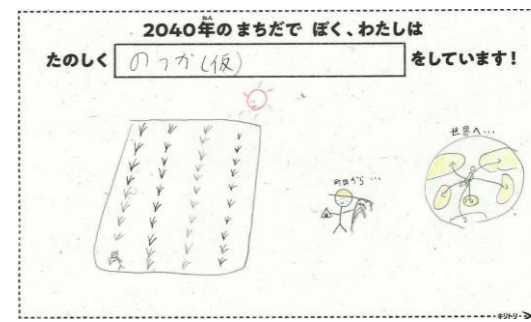 2040年のまちだで ぼく、わたしは
たのしく のうか(仮) をしています!
町田から…
世界へ…
キリトリ